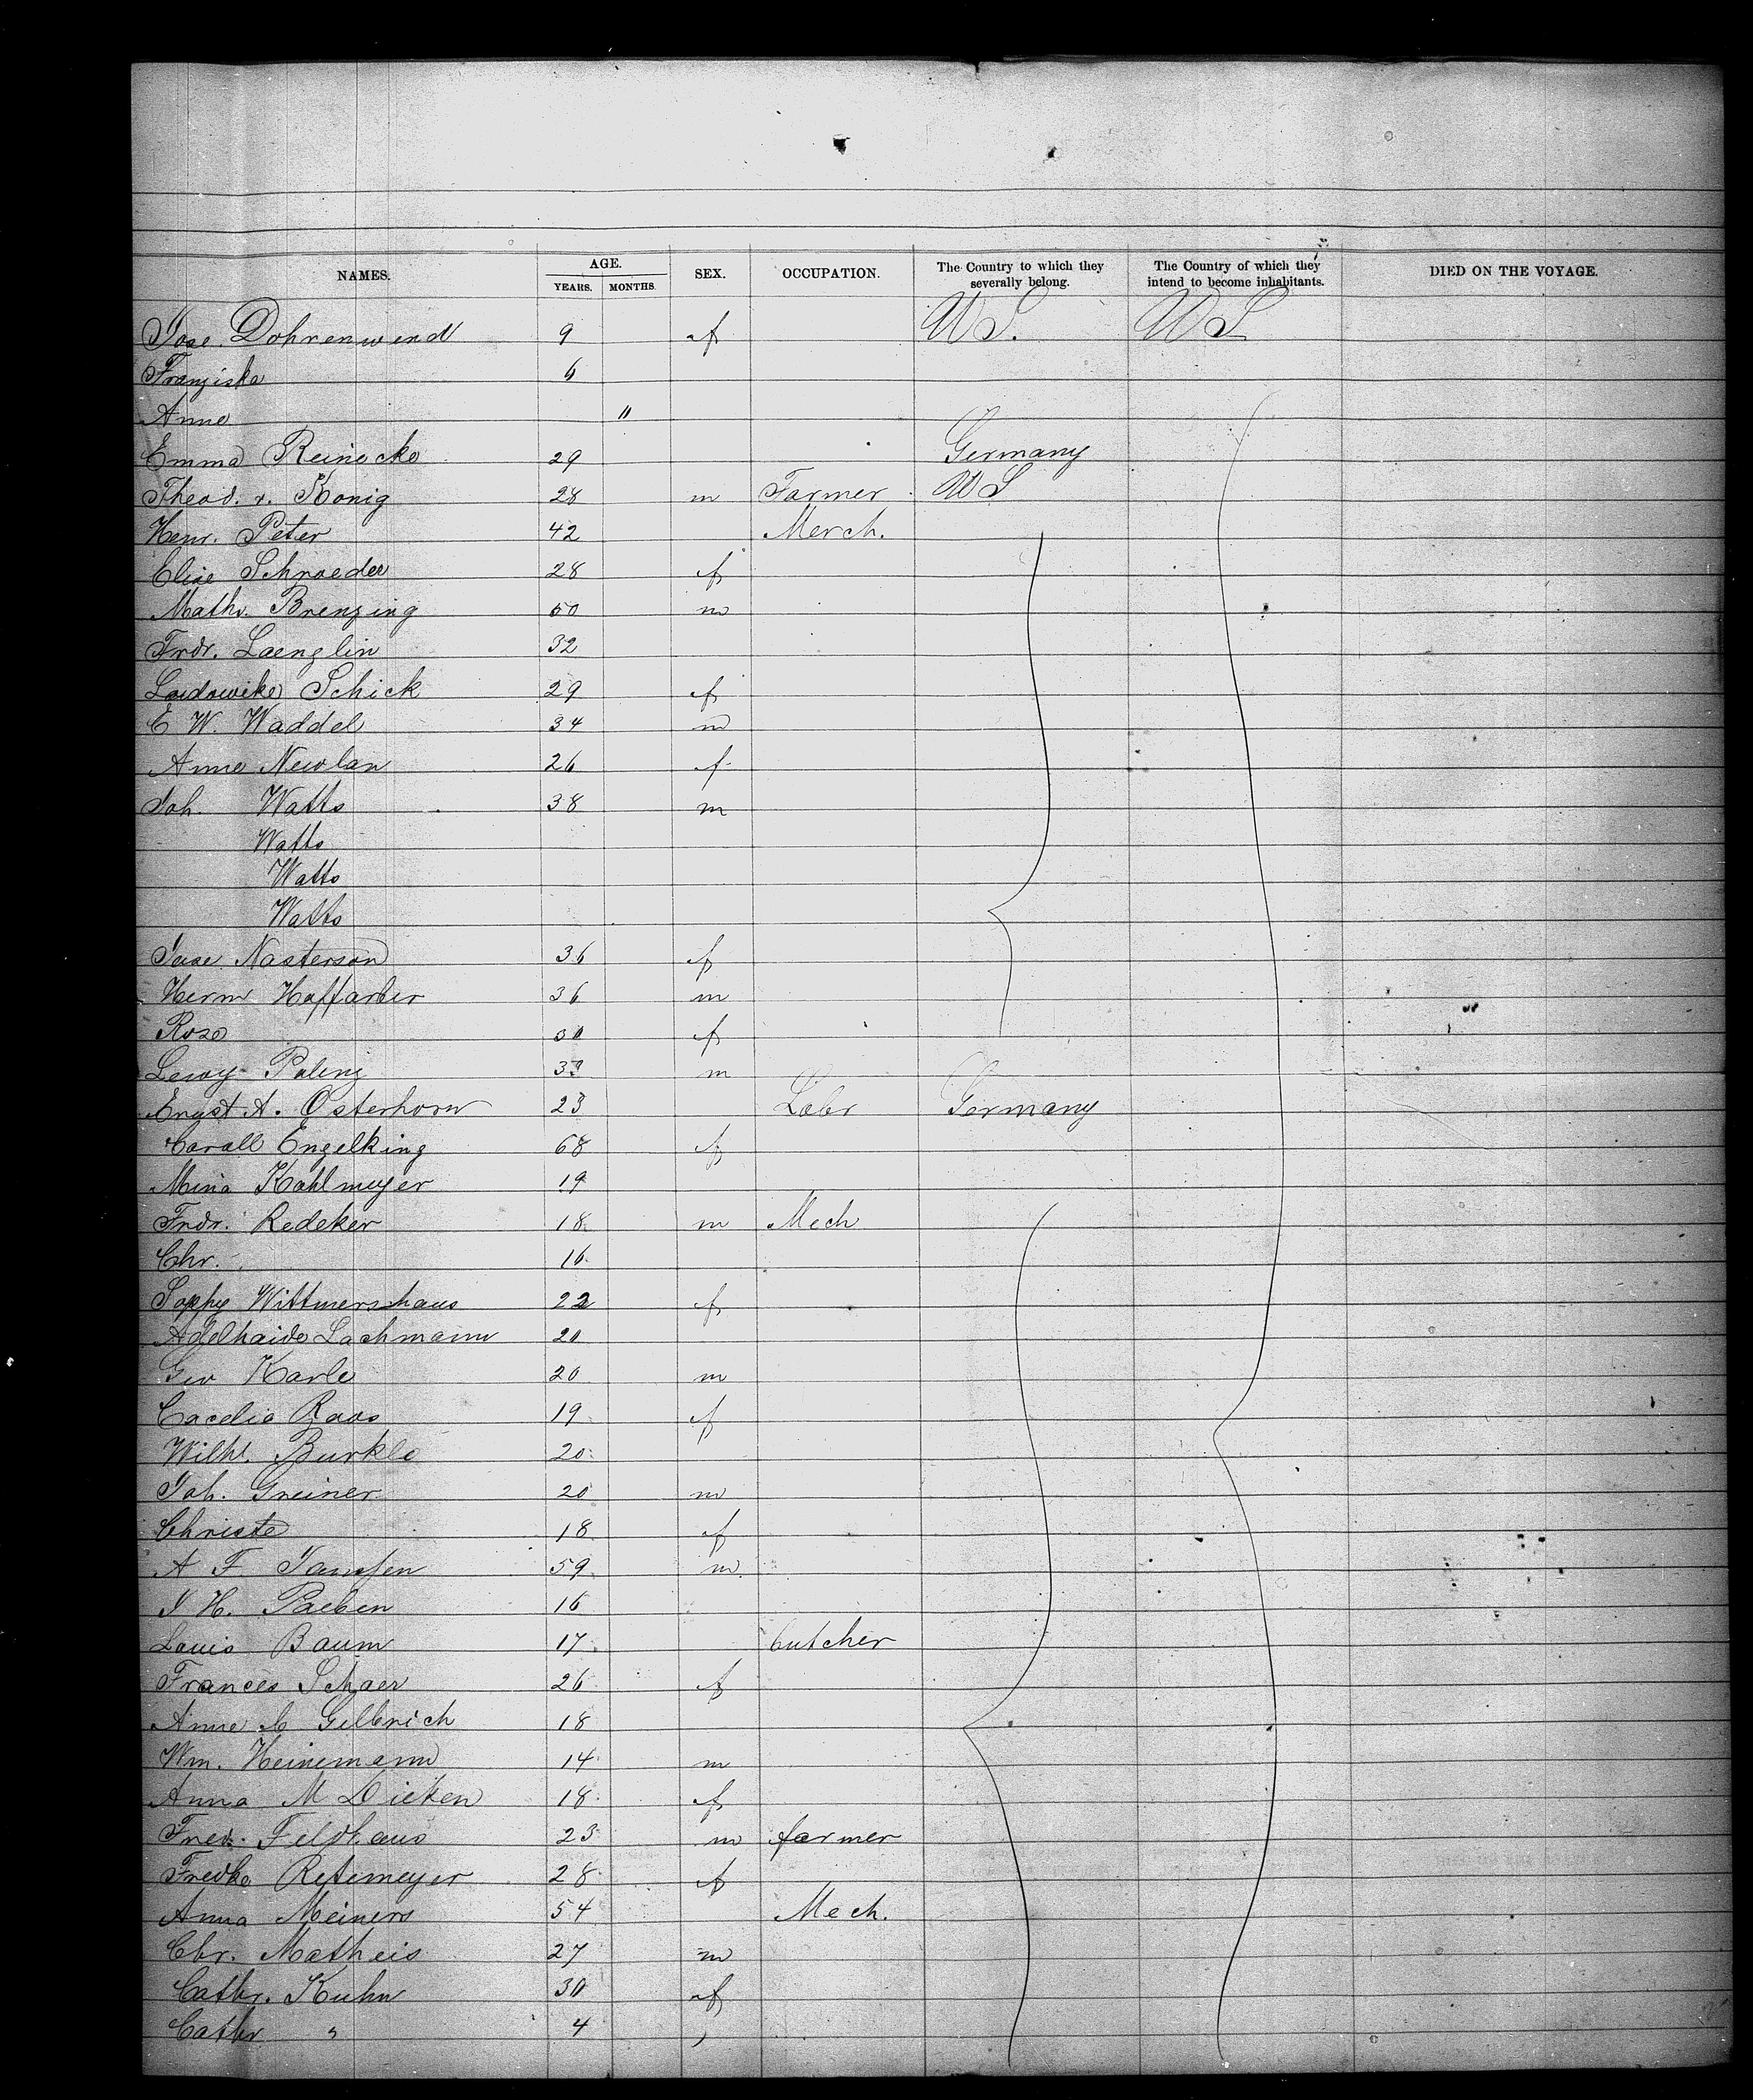 NAMES. AGE. YEARS. MONTHS. SEX. OCCUPATION. The Country to which they severally belong. The Country of which they intend to become inhabitants. DIED ON THE VOYAGE.
Dohrenwend 9 f U S. U S
Franziska 6
Anne 11
Emma Reinecke 29 Germany
Theod. v. Konig 28 m Farmer U S
Henr. Peter 42 Merch.
Elise Schroeder 28 f
Math. Brenzing 50 m
Frdr. Laenglin 32
Ludowike Schick 29 f
E W. Waddel 34 m
Anne Newlan 26 f
Joh. Watts 38 m
Watts
Watts
Watts
Nasterson 36 f
Herm Haffarber 36 m
Rose 30 f
Leroy Paling 33 m
Ernst A. Osterhorn 23 Labr Germany
Caroll Engelking 68 f
Mina Kohlmeyer 19
Frdr. Redeker 18 m Mech
Chr. 16
Sophy Wittmershaus 22 f
Adelhaide Lachmann 20
Geo Karle 20 m
Cacelia Raas 19 f
Wilh. Burkle 20
Joh. Greiner 20 m
Christe 18 f
A F. Janssen 59 m
J H. Paeben 16
Louis Baum 17 butcher
Frances Schaer 26 f
Anne C Gellbrich 18
Wm. Heinemann 14 m
Anna M Dieken 18 f
Fred. Feldhaus 23 m farmer
Fredke Retemeyer 28 f
Anna Meiners 54 Mech.
Chr. Matheis 27 m
Cathr. Kuhn 30 f
Cathr " 4 "